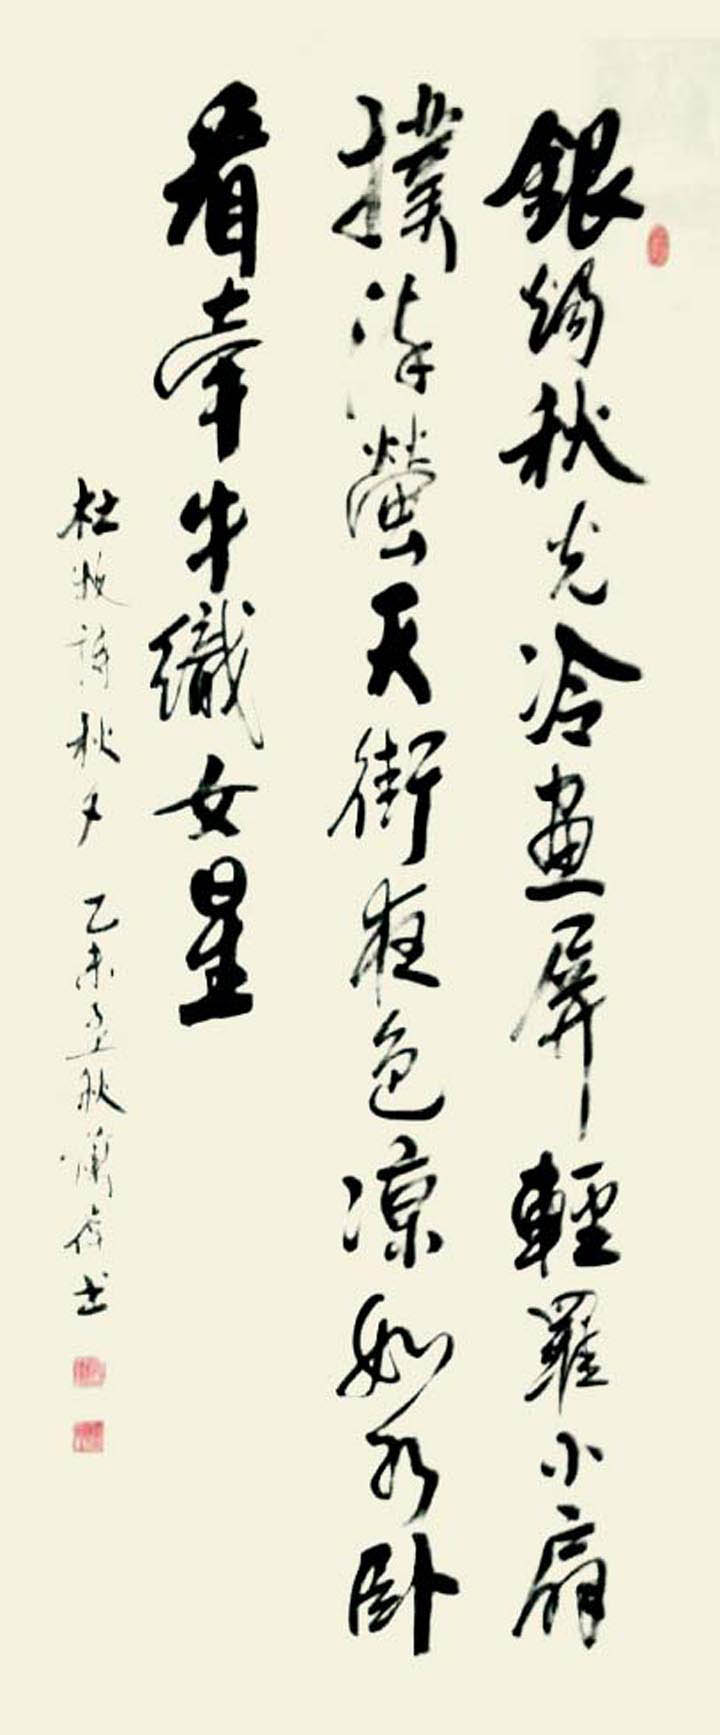 銀燭秋光冷畫屏輕羅小扇
撲流螢天街夜色涼如水卧
看牽牛織女星
杜牧詩秋夕 乙未孟秋 書